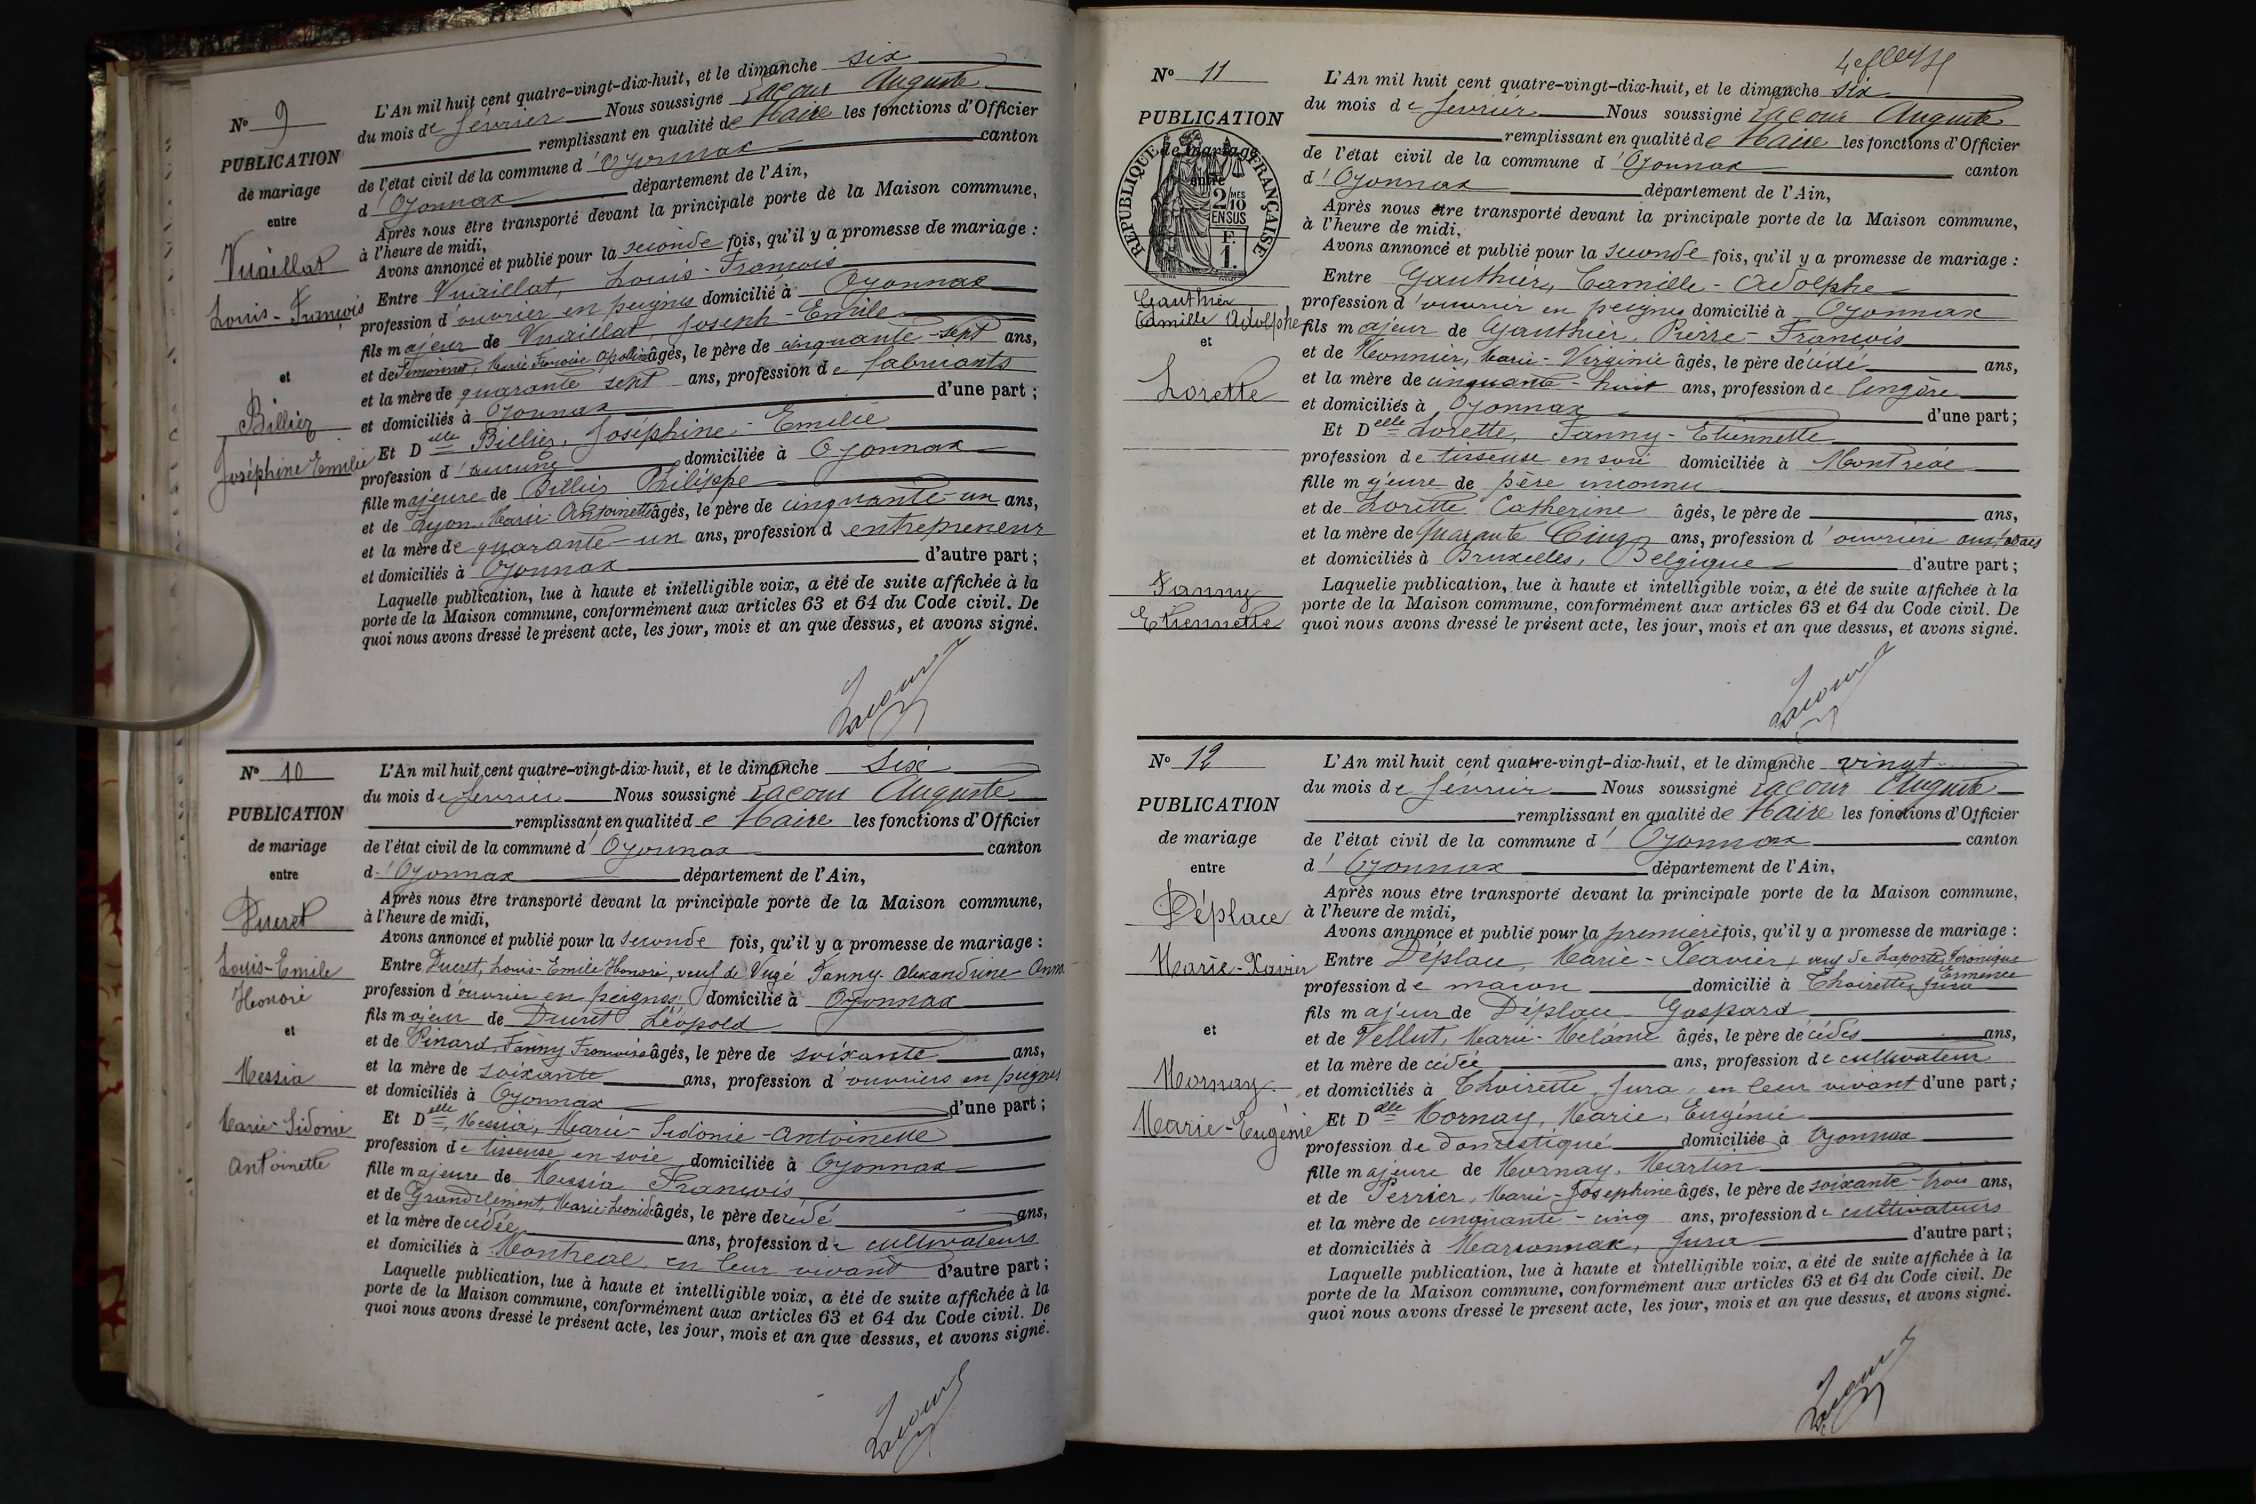 N° 9
PUBLICATION
de mariage
entre
Vuaillat
Louis-François
et
Billiez
Joséphine Emilie
L'An mil huit cent quatre-vingt-dix-huit, et le dimanche six
du mois de février Nous soussigné Lacour Auguste
remplissant en qualité de Maire les fonctions d'Officier
de l'état civil de la commune d'Oyonnax canton
d'Oyonnax département de l'Ain,
Après nous être transporté devant la principale porte de la Maison commune,
à l'heure de midi,
Avons annoncé et publié pour la seconde fois, qu'il y a promesse de mariage :
Entre Vuaillat, Louis-François
profession d'ouvrier en peignes domicilié à Oyonnax
fils majeur de Vuaillat, Joseph-Emile
et de Simonnet, Marie âgés, le père de cinquante-sept ans,
et la mère de quarante sept ans, profession de fabricants
et domiciliés à Oyonnax d'une part ;
Et Delle Billiez, Joséphine-Emilie
profession d'aucune domiciliée à Oyonnax
fille majeure de Billiez Philippe
et de Lyon, Marie-Antoinette âgés, le père de cinquante-un ans,
et la mère de quarante-un ans, profession d entrepreneur
et domiciliés à Oyonnax d'autre part ;
Laquelle publication, lue à haute et intelligible voix, a été de suite affichée à la
porte de la Maison commune, conformément aux articles 63 et 64 du Code civil. De
quoi nous avons dressé le présent acte, les jour, mois et an que dessus, et avons signé.
Lacour
N° 10
PUBLICATION
de mariage
entre
Ducret
Louis-Emile
Honoré
et
Messia
Marie-Sidonie
Antoinette
L'An mil huit cent quatre-vingt-dix-huit, et le dimanche six
du mois de février Nous soussigné Lacour Auguste
remplissant en qualité de Maire les fonctions d'Officier
de l'état civil de la commune d'Oyonnax canton
d'Oyonnax département de l'Ain,
Après nous être transporté devant la principale porte de la Maison commune,
à l'heure de midi,
Avons annoncé et publié pour la seconde fois, qu'il y a promesse de mariage :
Entre Ducret, Louis-Emile Honoré, veuf de Vugé Fanny Alexandrine
profession d'ouvrier en peignes domicilié à Oyonnax
fils majeur de Ducret Léopold
et de Pinard, Fanny Françoise âgés, le père de soixante ans,
et la mère de soixante ans, profession d'ouvriers en peignes
et domiciliés à Oyonnax d'une part ;
Et Delle Messia, Marie-Sidonie-Antoinette
profession de tisseuse en soie domiciliée à Oyonnax
fille majeure de Messia François
et de Grandclément, Marie-Léonide âgés, le père décédé ans,
et la mère décédée ans, profession de cultivateurs
et domiciliés à Montréal en leur vivant d'autre part ;
Laquelle publication, lue à haute et intelligible voix, a été de suite affichée à la
porte de la Maison commune, conformément aux articles 63 et 64 du Code civil. De
quoi nous avons dressé le présent acte, les jour, mois et an que dessus, et avons signé.
Lacour
N° 11
PUBLICATION
de mariage
entre
RÉPUBLIQUE FRANÇAISE
2 MES
10
EN SUS
F.
1.
Gauthier
Camille Adolphe
et
Lorette
Fanny
Etiennette
L'An mil huit cent quatre-vingt-dix-huit, et le dimanche six
du mois de février Nous soussigné Lacour Auguste
remplissant en qualité de Maire les fonctions d'Officier
de l'état civil de la commune d'Oyonnax canton
d'Oyonnax département de l'Ain,
Après nous être transporté devant la principale porte de la Maison commune,
à l'heure de midi,
Avons annoncé et publié pour la seconde fois, qu'il y a promesse de mariage :
Entre Gauthier, Camille-Adolphe
profession d'ouvrier en peignes domicilié à Oyonnax
fils majeur de Gauthier, Pierre-François
et de Monnier, Marie-Virginie âgés, le père décédé ans,
et la mère de cinquante-huit ans, profession de lingère
et domiciliés à Oyonnax d'une part ;
Et Delle Lorette, Fanny-Etiennette
profession de tisseuse en soie domiciliée à Montréal
fille majeure de père inconnu
et de Lorette Catherine âgés, le père de ans,
et la mère de quarante cinq ans, profession d'ouvrière aux tabacs
et domiciliés à Bruxelles, Belgique d'autre part ;
Laquelle publication, lue à haute et intelligible voix, a été de suite affichée à la
porte de la Maison commune, conformément aux articles 63 et 64 du Code civil. De
quoi nous avons dressé le présent acte, les jour, mois et an que dessus, et avons signé.
Lacour
N° 12
PUBLICATION
de mariage
entre
Déplace
Marie-Xavier
et
Mornay
Marie-Eugénie
L'An mil huit cent quatre-vingt-dix-huit, et le dimanche vingt
du mois de février Nous soussigné Lacour Auguste
remplissant en qualité de Maire les fonctions d'Officier
de l'état civil de la commune d'Oyonnax canton
d'Oyonnax département de l'Ain,
Après nous être transporté devant la principale porte de la Maison commune,
à l'heure de midi,
Avons annoncé et publié pour la première fois, qu'il y a promesse de mariage :
Entre Déplace, Marie-Xavier, veuf de Laporte, Véronique
Ermence
profession de maçon domicilié à Thoirette, Jura
fils majeur de Déplace Gaspard
et de Vellut, Marie-Mélanie âgés, le père décédés ans,
et la mère décédée ans, profession de cultivateur
et domiciliés à Thoirette, Jura, en leur vivant d'une part ;
Et Delle Mornay, Marie, Eugénie
profession de domestique domiciliée à Oyonnax
fille majeure de Mornay, Martin
et de Perrier, Marie-Josephine âgés, le père de soixante-trois ans,
et la mère de cinquante-cinq ans, profession de cultivateurs
et domiciliés à Marsonnax, Jura d'autre part ;
Laquelle publication, lue à haute et intelligible voix, a été de suite affichée à la
porte de la Maison commune, conformément aux articles 63 et 64 du Code civil. De
quoi nous avons dressé le présent acte, les jour, mois et an que dessus, et avons signé.
Lacour